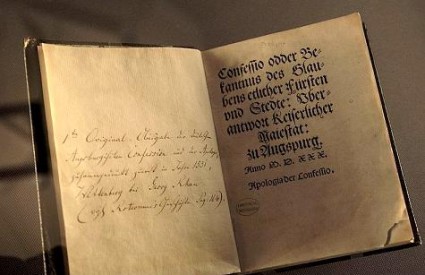 1te Original-Ausgabe der deutschen
Augsburgischen Confession und der Apologie
zusammengedruckt zuerst im Jahre 1531,
Wittenberg bei Georg Rhau
Confessio odder Be-
kantnus des Glau-
bens etlicher Fürsten
vnd Stedte: Uber-
antwort Keiserlicher
Maiestat:
zu Augspurg.
Anno M. D. XXX.
Apologia der Confessio.